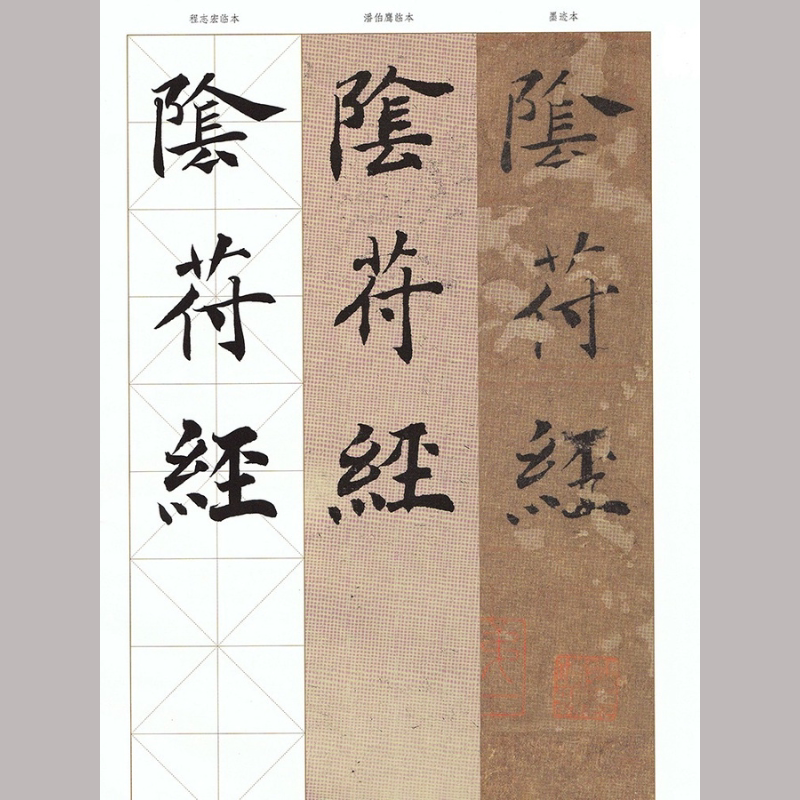 程志宏临本
潘伯鹰临本
墨迹本
陰苻經
陰苻經
陰苻經